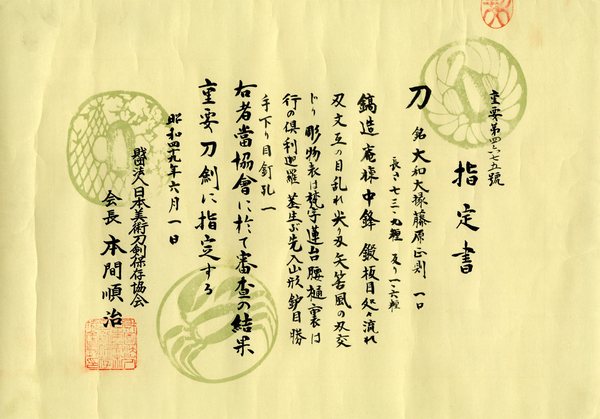 重要第四三七五號
指定書
刀 銘 大和大掾藤原正則 一口
長さ七三・九糎 反り一・六糎
鎬造 庵棟 中鋒 鍛板目処々流れ
刃文互の目乱れ尖り刃矢筈風の刃交
じり 彫物表は梵字蓮台腰樋 裏は
行の倶利迦羅 茎生ぶ先入山形 鑢目勝
手下り目釘孔一
右者當協會に於て審査の結果
重要刀剣に指定する
昭和四十九年六月一日
財団法人日本美術刀剣保存協会
会長 本間順治